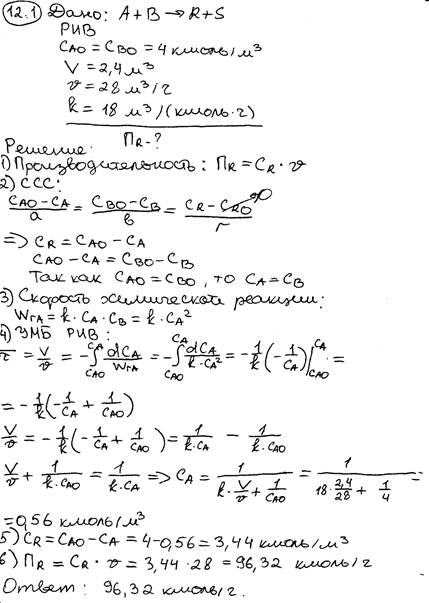 12.1 Дано: A + B → R + S
РИВ
CAO = CBO = 4 кмоль/м³
V = 2,4 м³
v = 28 м³/г
k = 18 м³/(кмоль·г)
ПR - ?
Решение:
1) Производительность: ПR = CR · v
2) ССС:
(CAO - CA)/a = (CBO - CB)/b = (CR - CRO→0)/r
=> CR = CAO - CA
CAO - CA = CBO - CB
Так как CAO = CBO, то CA = CB
3) Скорость химической реакции:
WrA = k · CA · CB = k · CA²
4) УМБ РИВ:
τ = V/v = -∫CAO^CA dCA/WrA = -∫CAO^CA dCA/(k·CA²) = -1/k(-1/CA)|CAO^CA =
= -1/k(-1/CA + 1/CAO)
V/v = -1/k(-1/CA + 1/CAO) = 1/(k·CA) - 1/(k·CAO)
V/v + 1/(k·CAO) = 1/(k·CA) => CA = 1/(k·V/v + 1/CAO) = 1/(18·2,4/28 + 1/4) =
= 0,56 кмоль/м³
5) CR = CAO - CA = 4 - 0,56 = 3,44 кмоль/м³
6) ПR = CR · v = 3,44 · 28 = 96,32 кмоль/г
Ответ: 96,32 кмоль/г.